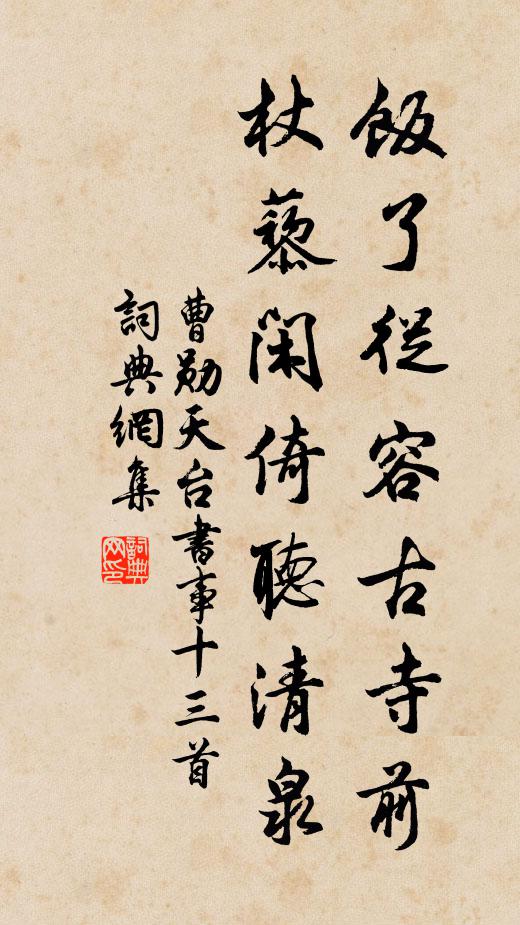 飯了從容古寺前
杖藜閑倚聽清泉
曹勛天台書事十三首
詞典網集
詞典网印